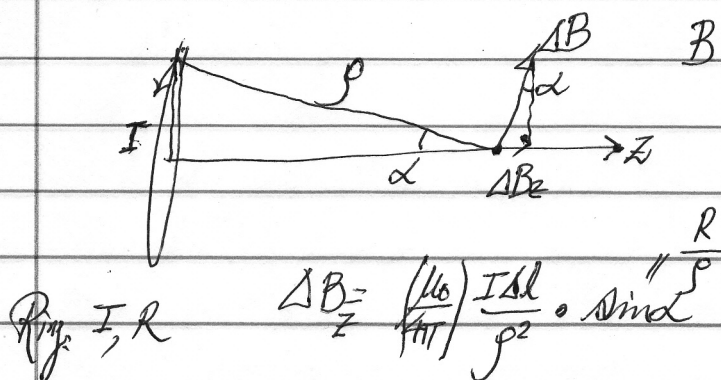 ΔB B
ρ α
I
α ΔBz z
" R/ρ
Ring. I, R ΔBz = (μ0/4π) IΔl/ρ² · sinα